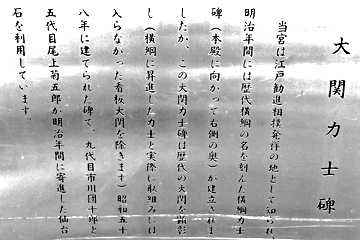 大関力士碑
当宮は江戸勧進相撲発祥の地として知られ、
明治年間には歴代横綱の名を刻んだ横綱力士
碑（本殿に向かって右側の奥）が建立されま
したが、この大関力士碑は歴代の大関を顕彰
し（横綱に昇進した力士と実際に取組みには
入らなかった看板大関を除きます）昭和五十
八年に建てられた碑で、九代目市川団十郎と
五代目尾上菊五郎が明治年間に寄進した仙台
石を利用しています。